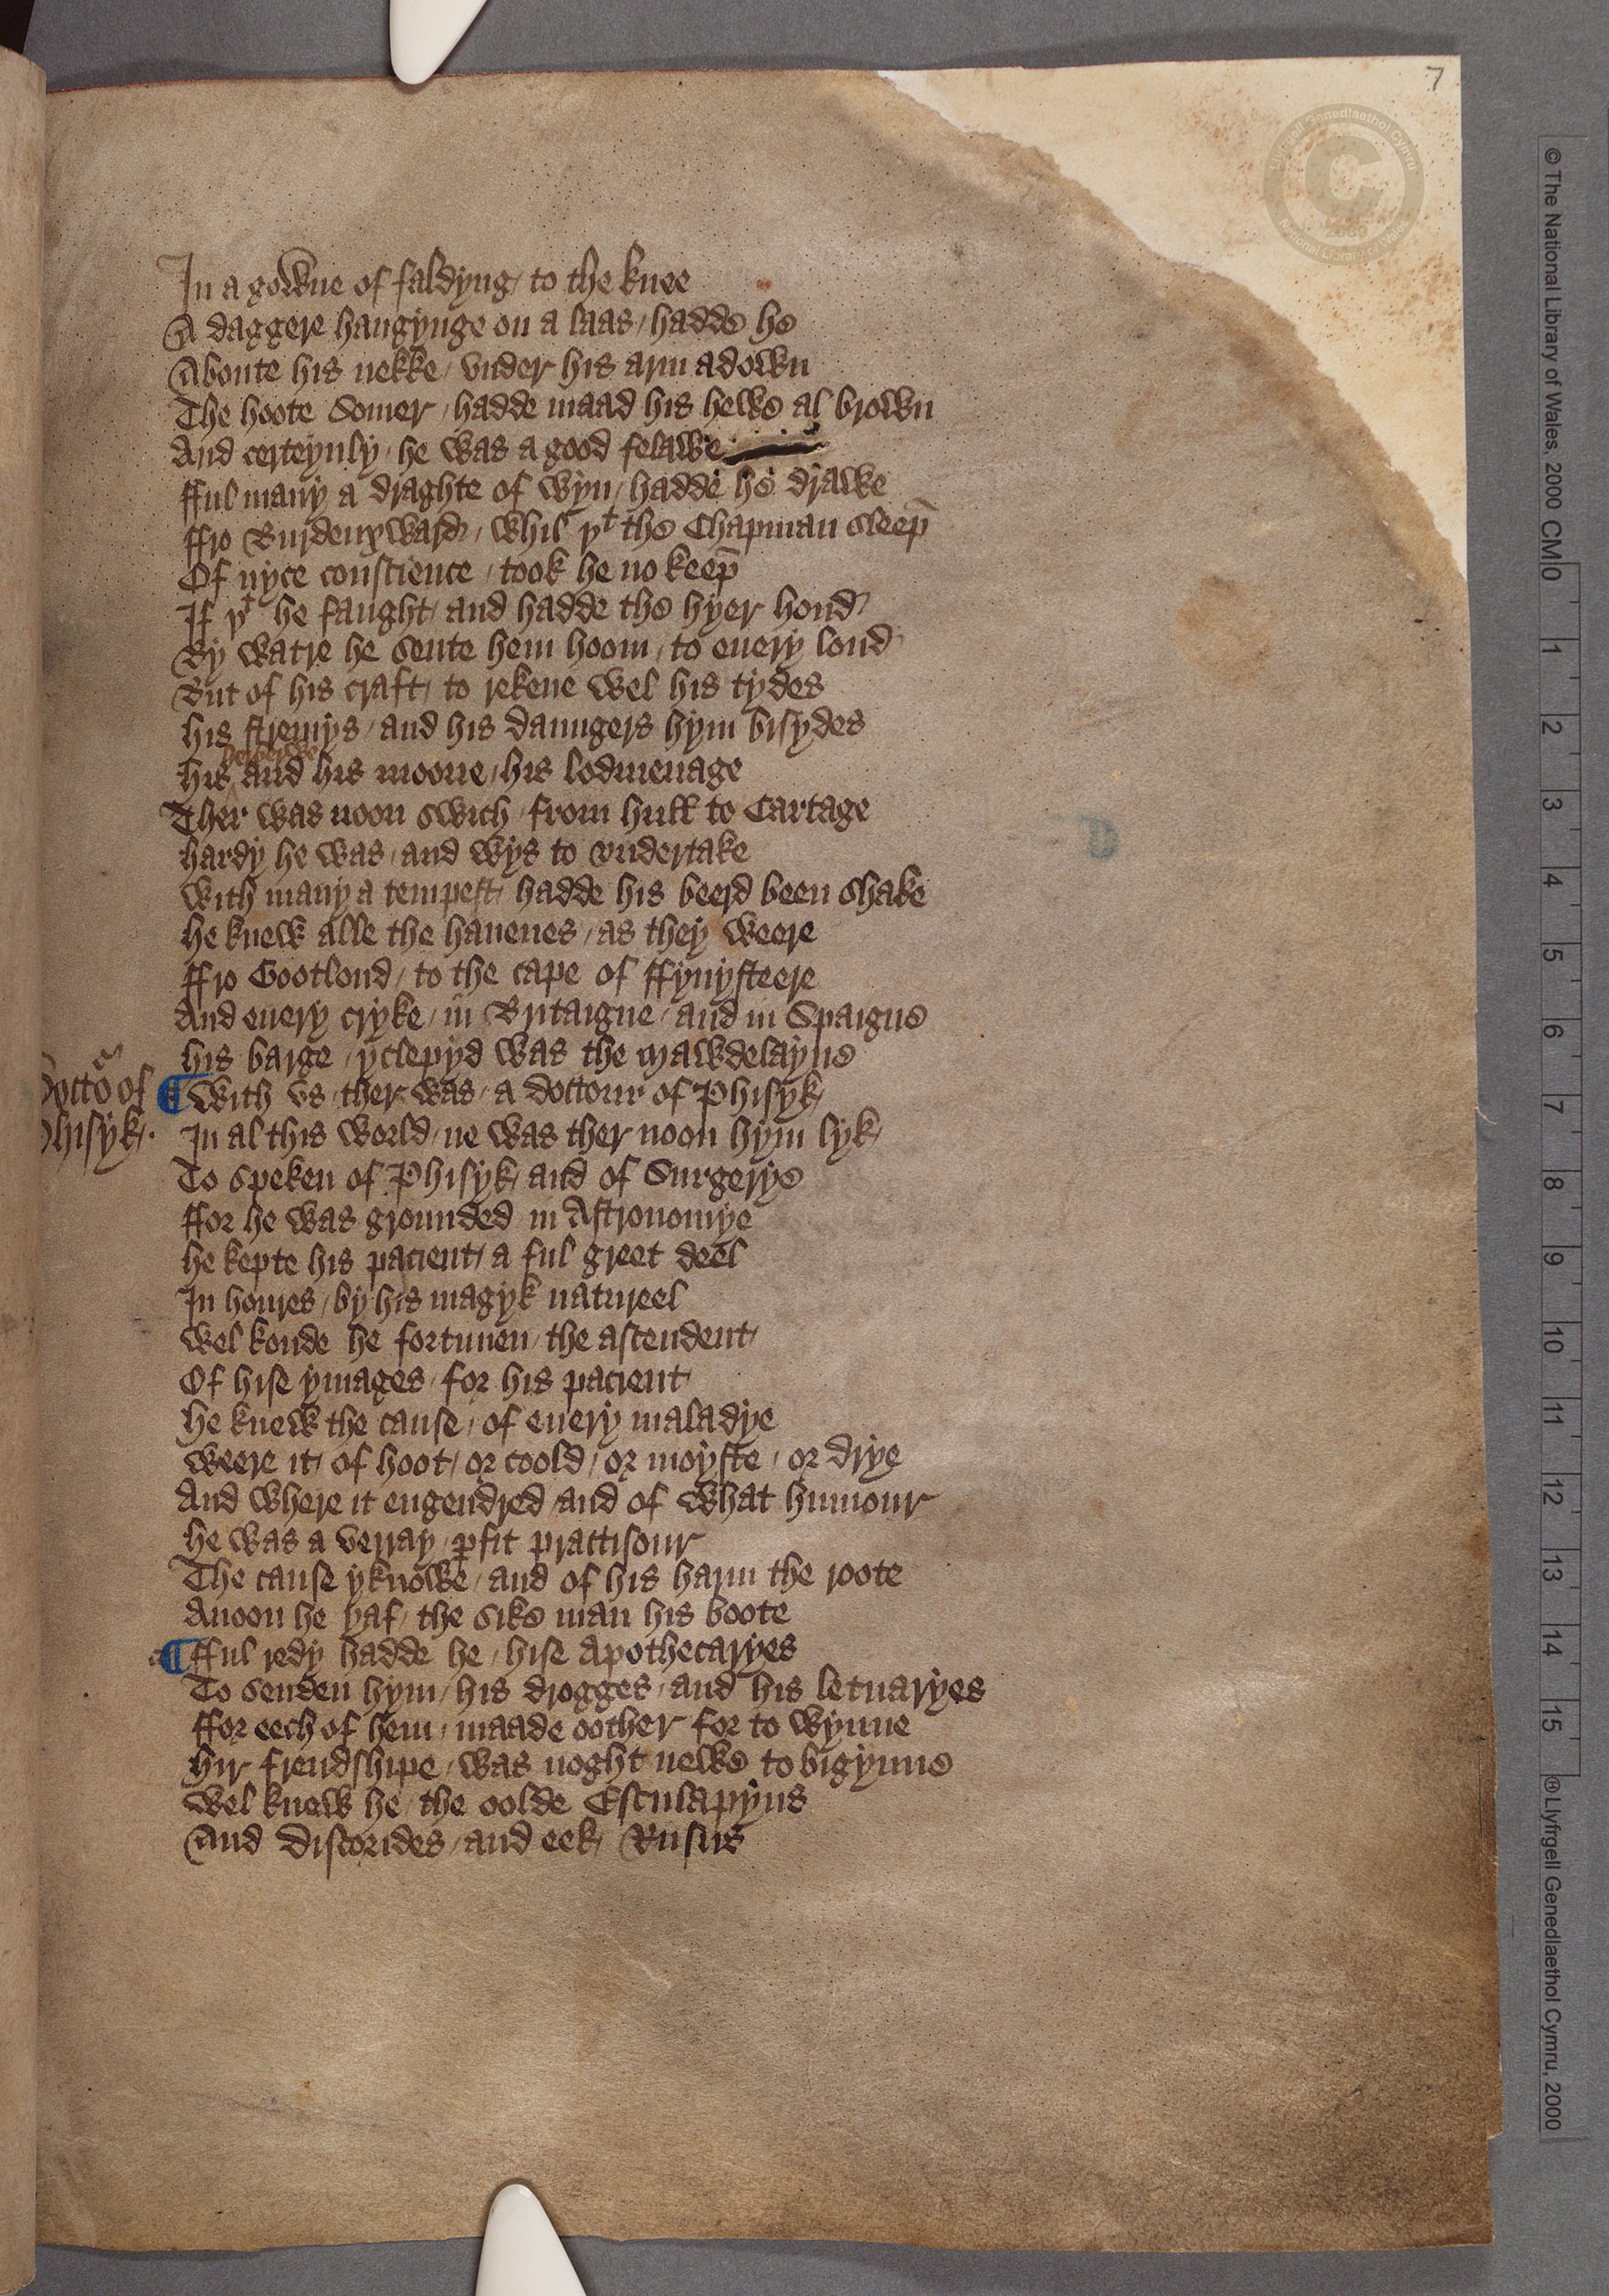 7
In a gowne of faldyng / to the knee
A daggere hangynge on a laas / hadde he
Aboute his nekke / vnder his arm adown
The hoote Somer / hadde maad his hewe al brown
And certeynly / he was a good felawe
fful many a draghte of wyn / hadde he drawe
ffro Burdeuxward / whil þt the Chapman sleep̄
Of nyce conscience / took he no keep̄
If þt he faught / and hadde the hyer hond
By watre he sente hem hoom / to euery lond
But of his craft / to rekene wel his tydes
his stremys / and his daungers hym bisydes
herberwe
his and his moone / his lodmenage
Ther was noon swich / from hull to Cartage
hardy he was / and wys to vndertake
with many a tempest / hadde his beerd been shake
he knew alle the hauenes / as they weere
ffro Gootlond / to the cape of ffynysteere
And euery cryke / in Britaigne / and in Spaigne
his barge / yclepyd was the Mawdelayne
Docto of
Phisyk .
¶ with vs / ther was / a doctour of Phisyk
In al this world / ne was ther noon hym lyk
To speken of Phisyk / and of Surgerye
ffor he was grounded in Astronomye
he kepte his pacient / a ful greet deel
In houres / by his magyk natureel
wel konde he fortunen / the ascendent
Of hise ymages / for his pacient
he knew the cause / of euery maladye
weere it / of hoot / or coold / or moyste / or drye
And where it engendred / and of what humour
he was a verray / ꝑfit practisour
The cause yknowe / and of his harm the roote
Anoon he yaf / the sike man his boote
¶ fful redy hadde he / hise Apothecaryes
To senden hym / his drogges / and his letuaryes
ffor eech of hem / maade oother for to wynne
hir frendshipe / was noght newe to bigynne
wel knew he / the oolde Esculapyus
And Discorides / and eek Rufus
D
© The National Library of Wales, 2000 CM 0 1 2 3 4 5 6 7 8 9 10 11 12 13 14 15 ® Llyfrgell Genedlaethol Cymru, 2000